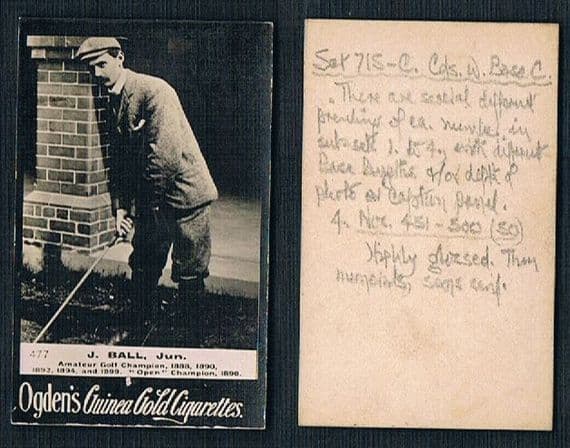 477
J. BALL, Jun.
Amateur Golf Champion, 1888, 1890,
1892, 1894, and 1899. "Open" Champion, 1890.
Ogden's Guinea Gold Cigarettes.
Set 715-C. Cds. W. Base C.
There are several different
printing of ea. number in
subsets 1. to 4. with different
Base &/or depth of
photo or Caption panel.
4. Nos. 451-500 (50)
Highly glossed. Thin